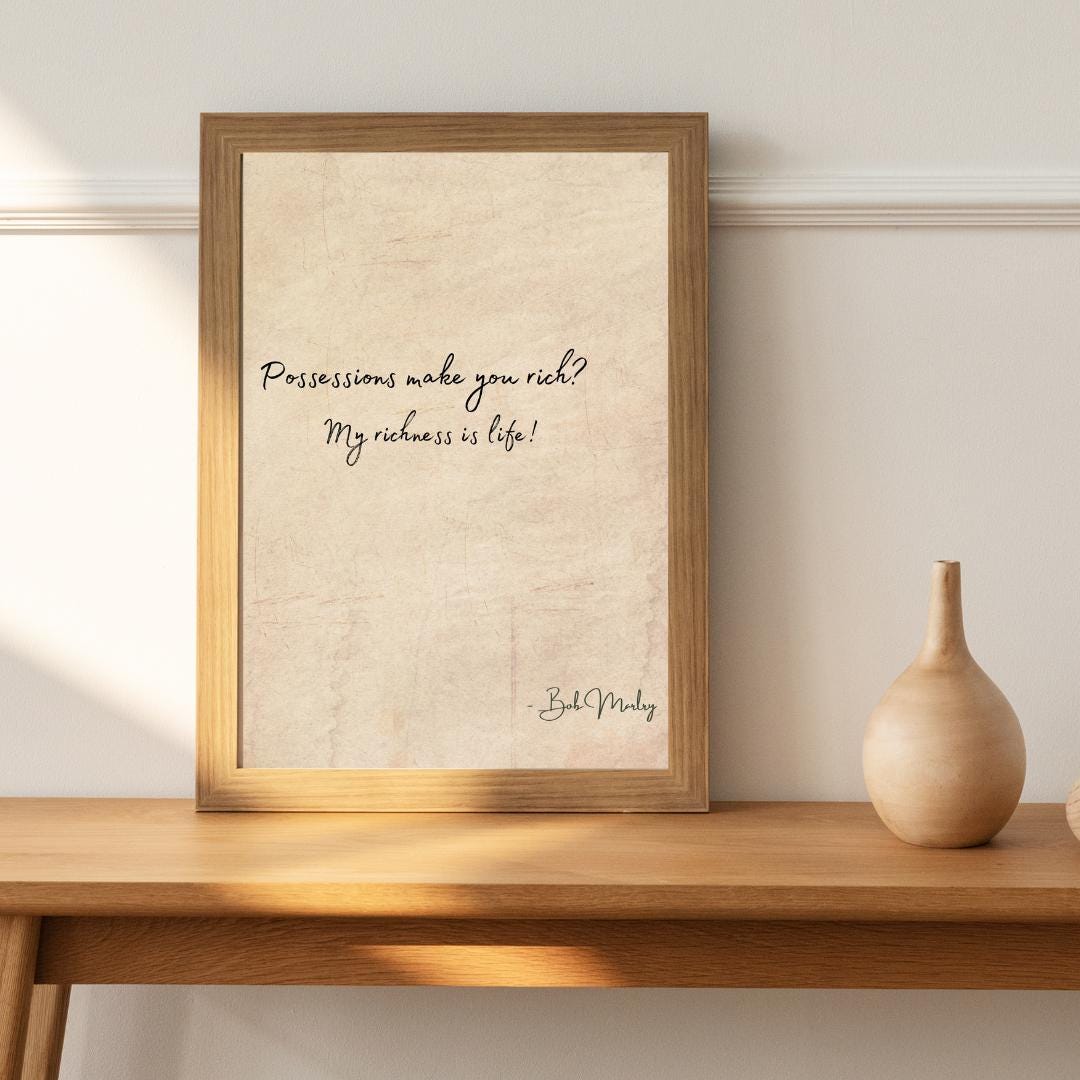 Possessions make you rich?
My richness is life!
- Bob Marlry